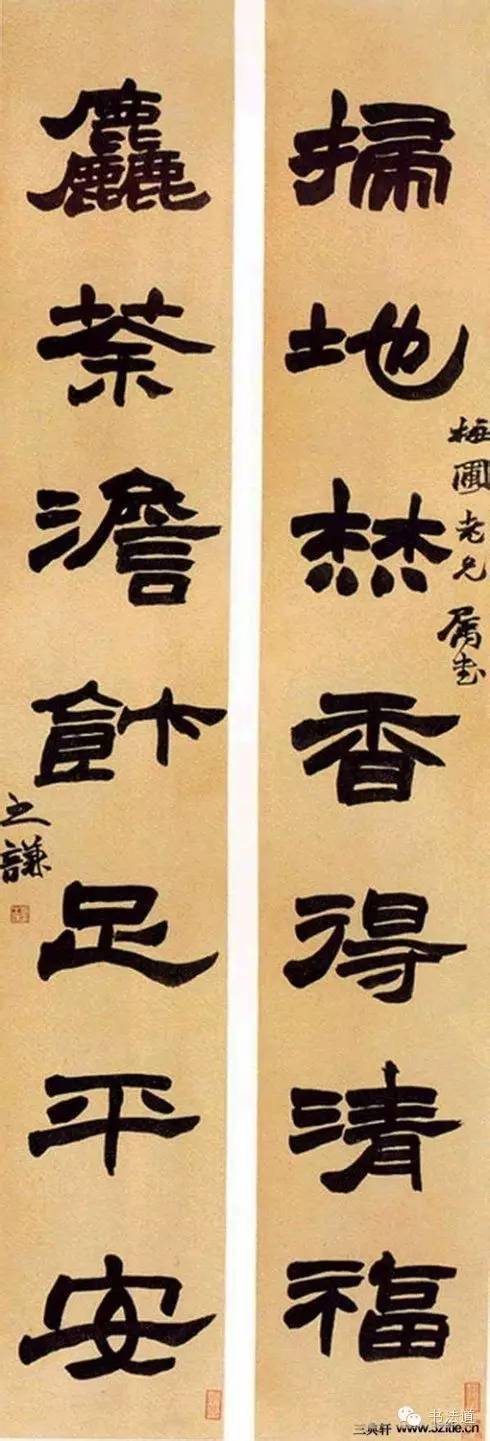 掃地焚香得清福
梅圃老兄屬書
麤茶澹飰足平安
之謙
书法道
三典轩